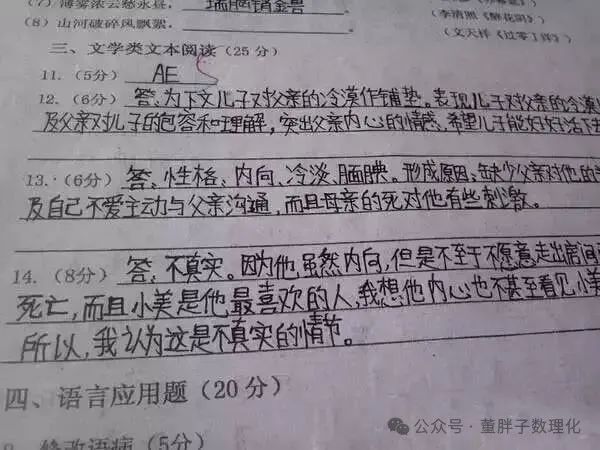 (7) 薄雾浓云愁永昼，瑞脑销金兽
(8) 山河破碎风飘絮，
(李清照《醉花阴》)
(文天祥《过零丁洋》)
三、文学类文本阅读（25分）
11.（5分） AE
12.（6分） 答：为下文儿子对父亲的冷漠作铺垫。表现儿子对父亲的冷漠
及父亲对儿子的包容和理解，突出父亲内心的情感，希望儿子能好好活下去
13.（6分） 答：性格：内向、冷淡、腼腆。形成原因：缺少父亲对他的
及自己不爱主动与父亲沟通，而且母亲的死对他有些刺激。
14.（8分） 答：不真实。因为他虽然内向，但是不至于不愿意走出房间
死亡，而且小美是他最喜欢的人，我想他内心也不甚至看见小美
所以，我认为这是不真实的情节。
四、语言应用题（20分）
修改语病（5分）
公众号·董胖子数理化